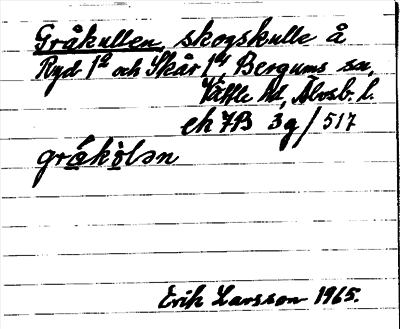 Gråkullen, skogskulle å
Ryd 1² och Skår 1⁴, Bergums sn,
Vättle hd, Älvsb. l.
ek 7B 3g/517
gråkòlən
Erik Larsson 1965.